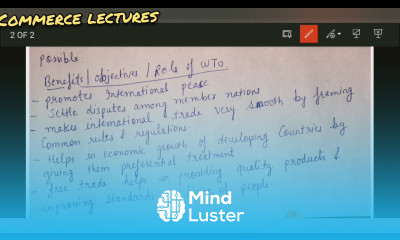 COMMERCE LECTURES
2 OF 2
possible
Benefits / objectives / Role of WTO
- promotes International peace
- Settle disputes among member nations
- makes international trade very smooth by framing
Common rules & regulations.
- Helps in economic growth of developing Countries by
giving them preferential treatment
- free trade helps in providing quality products &
improving standards of people.
Mind
Luster